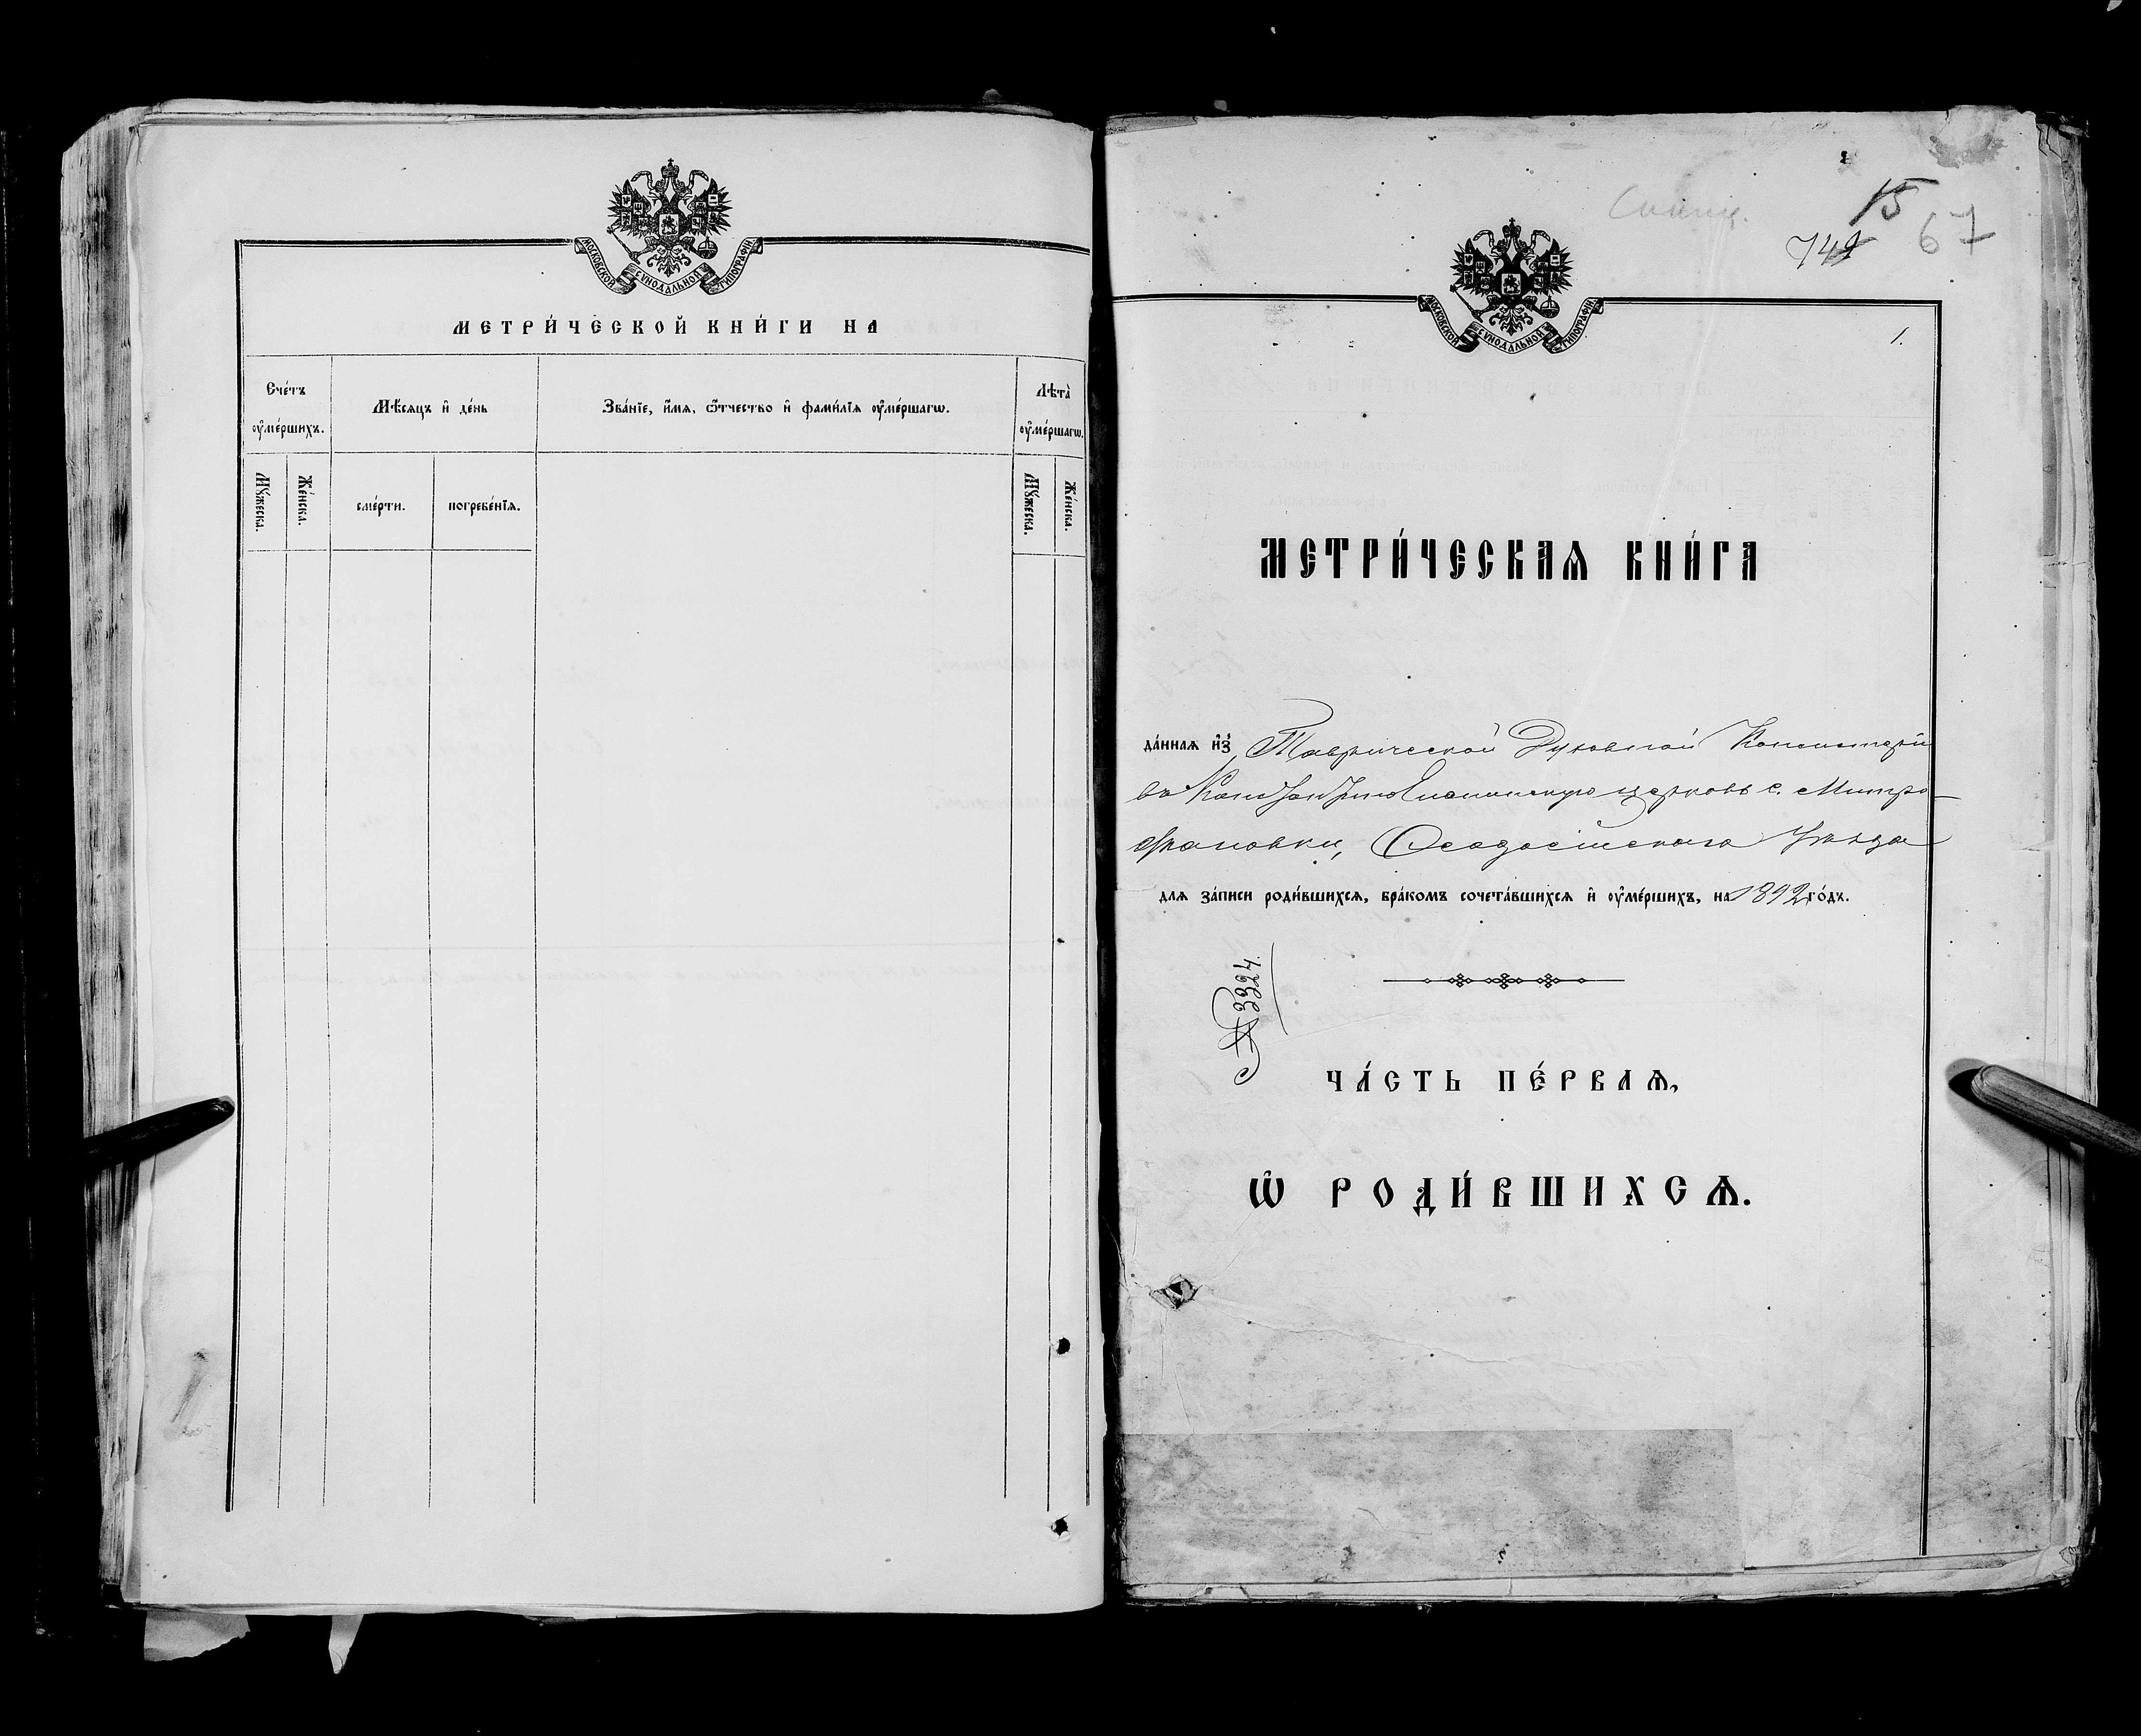 МОСКОВСКОЙ СѴНОДАЛЬНОЙ ТИПОГРАФІИ
МЕТРИ́ЧЕСКОЙ КНИ́ГИ НА
Сче́тъ ᲂу҆ме́ршихъ.
Мѣ́сяцъ и҆ де́нь
Зва́нїе, и҆́мѧ, ѻ҆́тчество и҆ фами́лїѧ ᲂу҆ме́ршагѡ.
Лѣ́та ᲂу҆ме́ршагѡ.
Мꙋ́жеска.
Же́нска.
сме́рти.
погребе́нїѧ.
Мꙋ́жеска.
Же́нска.
15
742
67
МОСКОВСКОЙ СѴНОДАЛЬНОЙ ТИПОГРАФІИ
1.
МЕТРИ́ЧЕСКАѦ КНИ́ГА
да́ннаѧ и҆з̾ Таврической Духовной Консисторіи
въ КонстантиноЕленинскую церковь с. Митро-
фановки, Ѳеодосійскаго Уѣзда
для за́писи роди́вшихсѧ, бра́комъ сочета́вшихсѧ и҆ ᲂу҆ме́ршихъ, на 1892 го́дъ.
№ 3324.
ЧА́СТЬ ПЕ́РВАѦ,
Ѽ РОДИ́ВШИХСѦ.